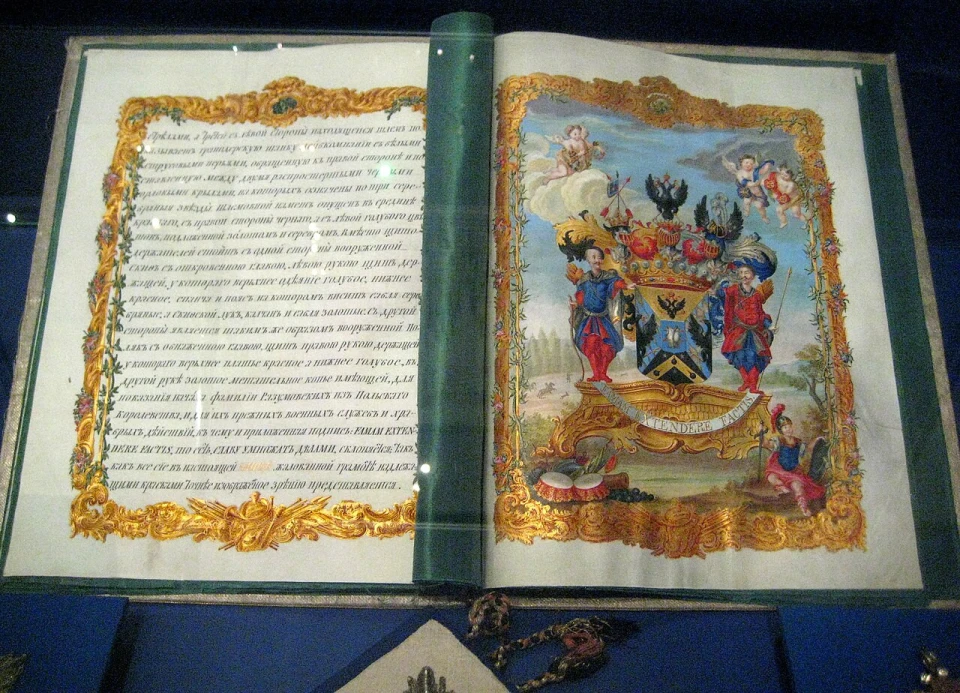 стрѣлами, а третей съ лѣвой стороны находящейся шлемъ по-
казываетъ гранодерскую шапку лейбкомпаніи съ бѣлыми
струсовыми перьями, обращенную къ правой сторонѣ и по-
ставленную между двумя распростертыми черными
орловыми крылами, на которыхъ означены по три сере-
бряныя звѣзды. Шлемовной наметъ опущенъ въ срединѣ
съ правой стороны чернаго, а съ лѣвой голубаго цвѣ-
товъ, подложенной золотомъ и серебромъ. Вмѣсто щито-
держателей стоитъ съ одной стороны вооруженной
Скифъ съ откровенною главою, лѣвою рукою щитъ дер-
жащей, у котораго верхнее одѣяніе голубое, нижнее
красное, епанча и поясъ на которомъ виситъ сабля сере-
бряные; а Скифской лукъ, калчанъ и сабля золотые. Съ другой
стороны является таковымъ же образомъ вооруженной По-
лякъ съ обнаженною главою, щитъ правою рукою держащей
у котораго верхнее платье красное а нижнее голубое, въ
другой рукѣ золотое метательное копье имѣющей, для
показанія начала фамиліи Разумовскихъ изъ Польскаго
Королевства, и для ихъ прежнихъ военныхъ службъ и хра-
брыхъ дѣйствій, къ чему и приложенная надпись: FAMAM EXTEN-
DERE FACTIS, то есть, славу умножать дѣлами, склоняется. Какъ
какъ все сіе въ настоящей жалованной грамотѣ надлежа-
щими красками изображеное зрѣнію представляется.
EXTENDERE FACTIS